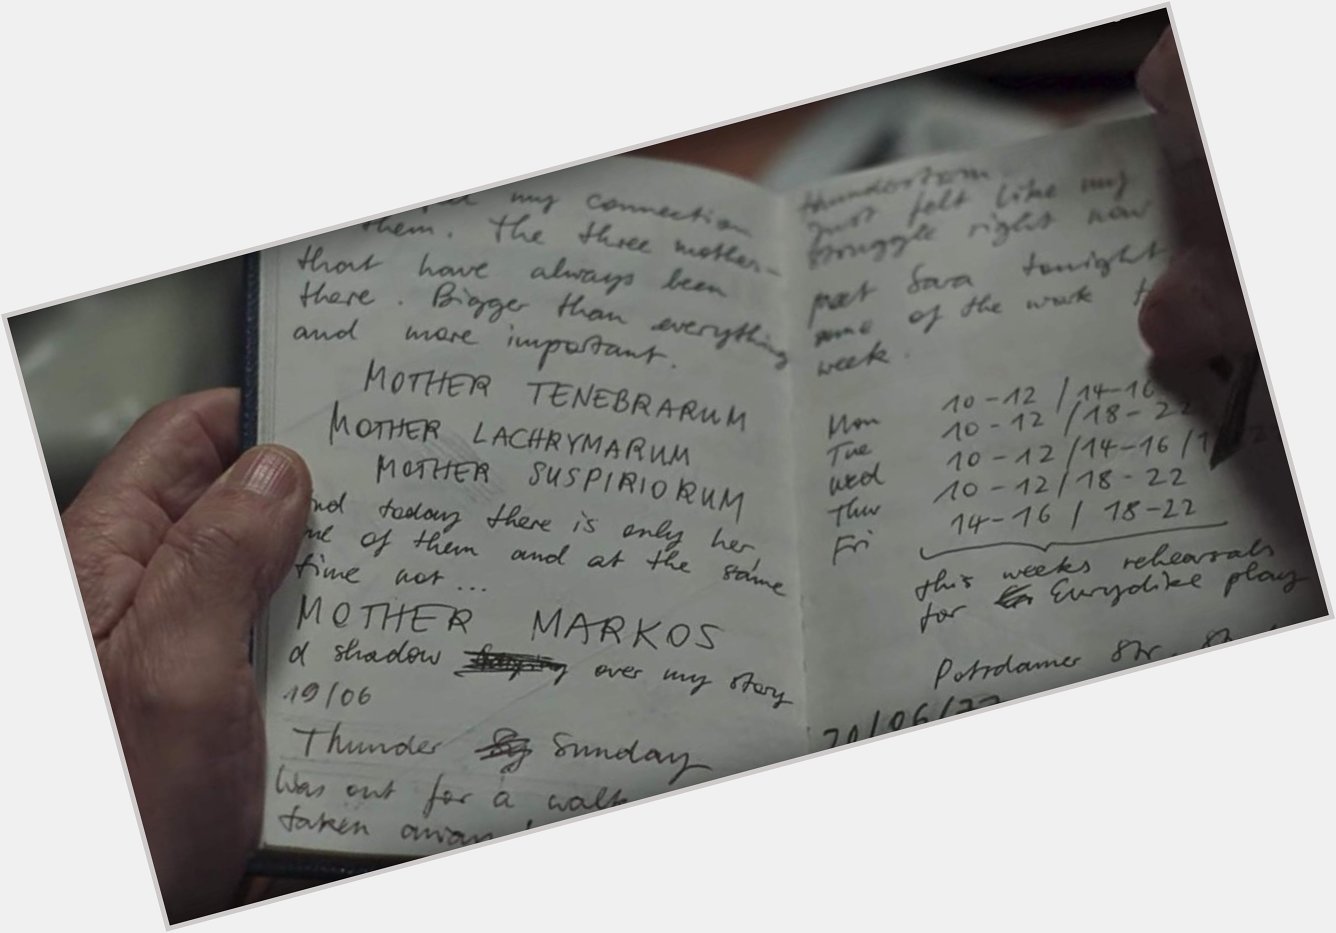 my connection
them. The three mother-
that have always been
there. Bigger than everything
and more important.
MOTHER TENEBRARUM
MOTHER LACHRYMARUM
MOTHER SUSPIRIORUM
and today there is only her,
of them and at the same
time not...
MOTHER MARKOS
a shadow over my story
19/06
Thunder Sunday
Was out for a walk
taken away
thunderstorm.
Just felt like my
struggle right now
meet Sara tonight
some of the work
week.
Mon 10-12 / 14-16
Tue 10-12 / 18-22
Wed 10-12 / 14-16 /
Thur 10-12 / 18-22
Fri 14-16 / 18-22
this weeks rehearsals
for Eurydike play
Potsdamer Str.
20/06/77